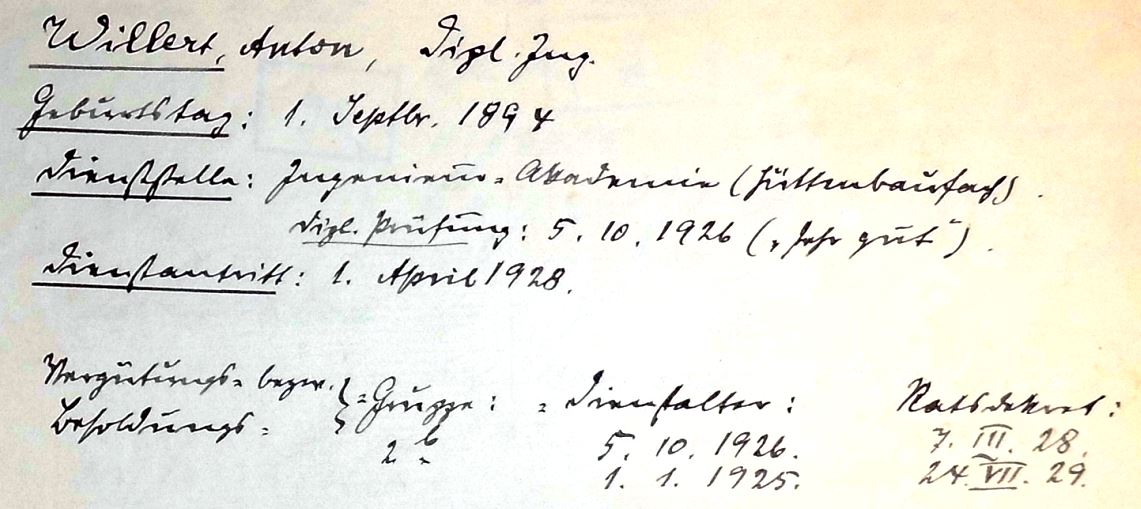 Willert, Anton, Dipl. Ing.
Geburtstag: 1. Septbr. 1894
Dienststelle: Ingenieur-Akademie (Hüttenbaufach).
Dipl. Prüfung: 5. 10. 1926 („Sehr gut").
Dienstantritt: 1. April 1928.
Vergütungs- bezw. } -Gruppe: -Dienstalter: Ratsdekret:
Besoldungs-
2b 5. 10. 1926. 7. III. 28.
1. 1. 1925. 24. VII. 29.